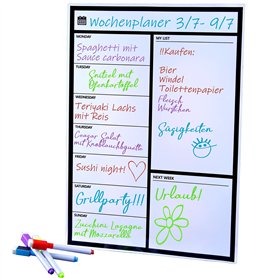 Wochenplaner 3/7- 9/7
MONDAY
Spaghetti mit
Sauce carbonara
TUESDAY
Snitzel mit
Ofenkartoffel
WEDNESDAY
Teriyaki Lachs
mit Reis
THURSDAY
Ceasar Salat
mit Knoblauchbguette
FRIDAY
Sushi night!
SATURDAY
Grillparty!!!
SUNDAY
Zucchini Lasagne
mit Mozzarella
MY LIST
!!Kaufen:
Bier
Windel
Toilettenpapier
Fleisch
Würstchen
Süzigkeiten
NEXT WEEK
Urlaub!